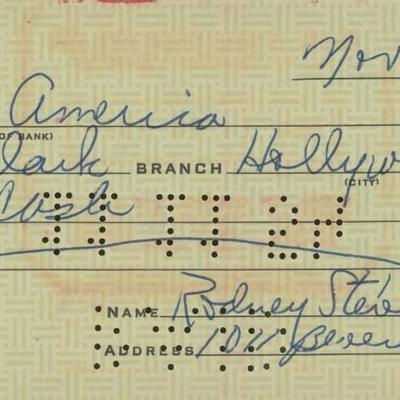 Nov
America
OF BANK)
lark BRANCH Hollyw
(CITY)
Cash
NAME Rodney Steve
ADDRESS 1011 Bever